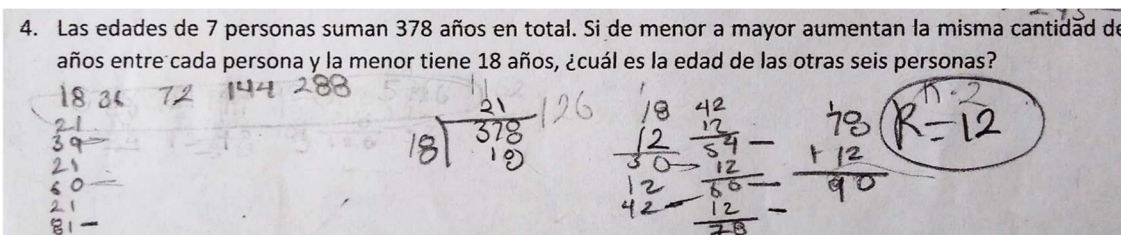 4. Las edades de 7 personas suman 378 años en total. Si de menor a mayor aumentan la misma cantidad de
años entre cada persona y la menor tiene 18 años, ¿cuál es la edad de las otras seis personas?
18 36 72 144 288
21
39
21
60
21
81
21
18 378
18
126
18
12
30
12
42
42
12
54
12
66
12
78
78
+ 12
90
R=12